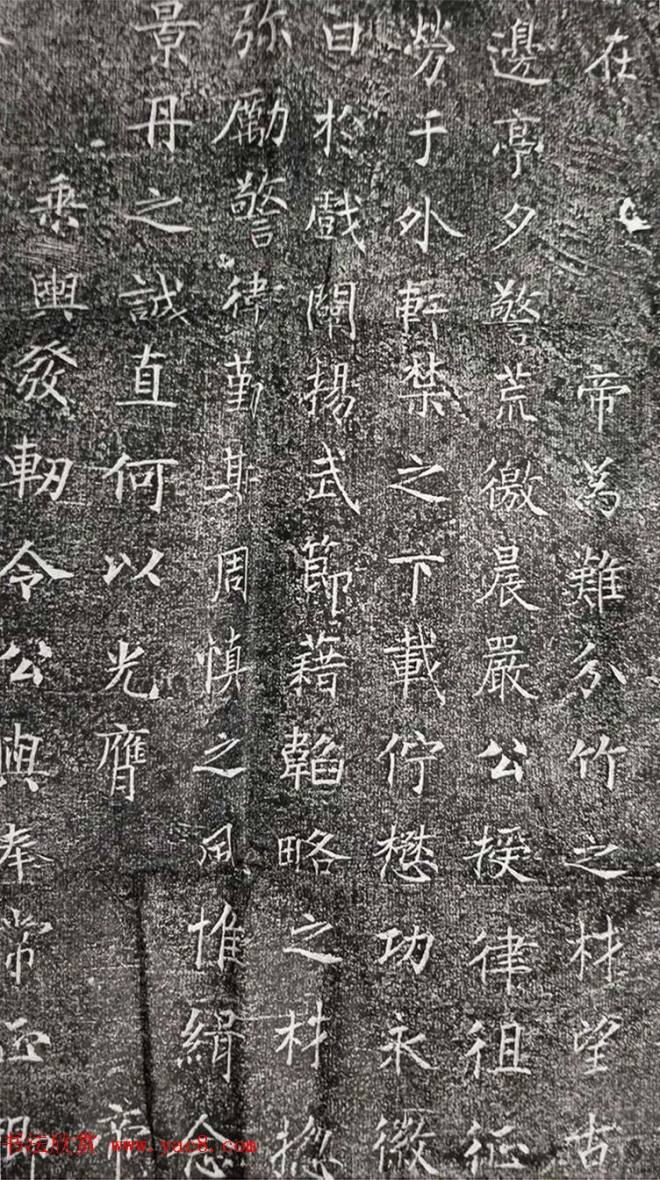 在 帝為難分竹之材望古
邊亭夕警荒徼晨嚴公授律徂征
勞于外軒禁之下載佇懋功永徽
日於戲闡揚武節藉韜略之材揔
弥勵警律勤其周慎之風惟緝念
景丹之誠直何以光膺 帝
乘輿發軔令公與奉常正卿
书法欣赏 www.yac8.com